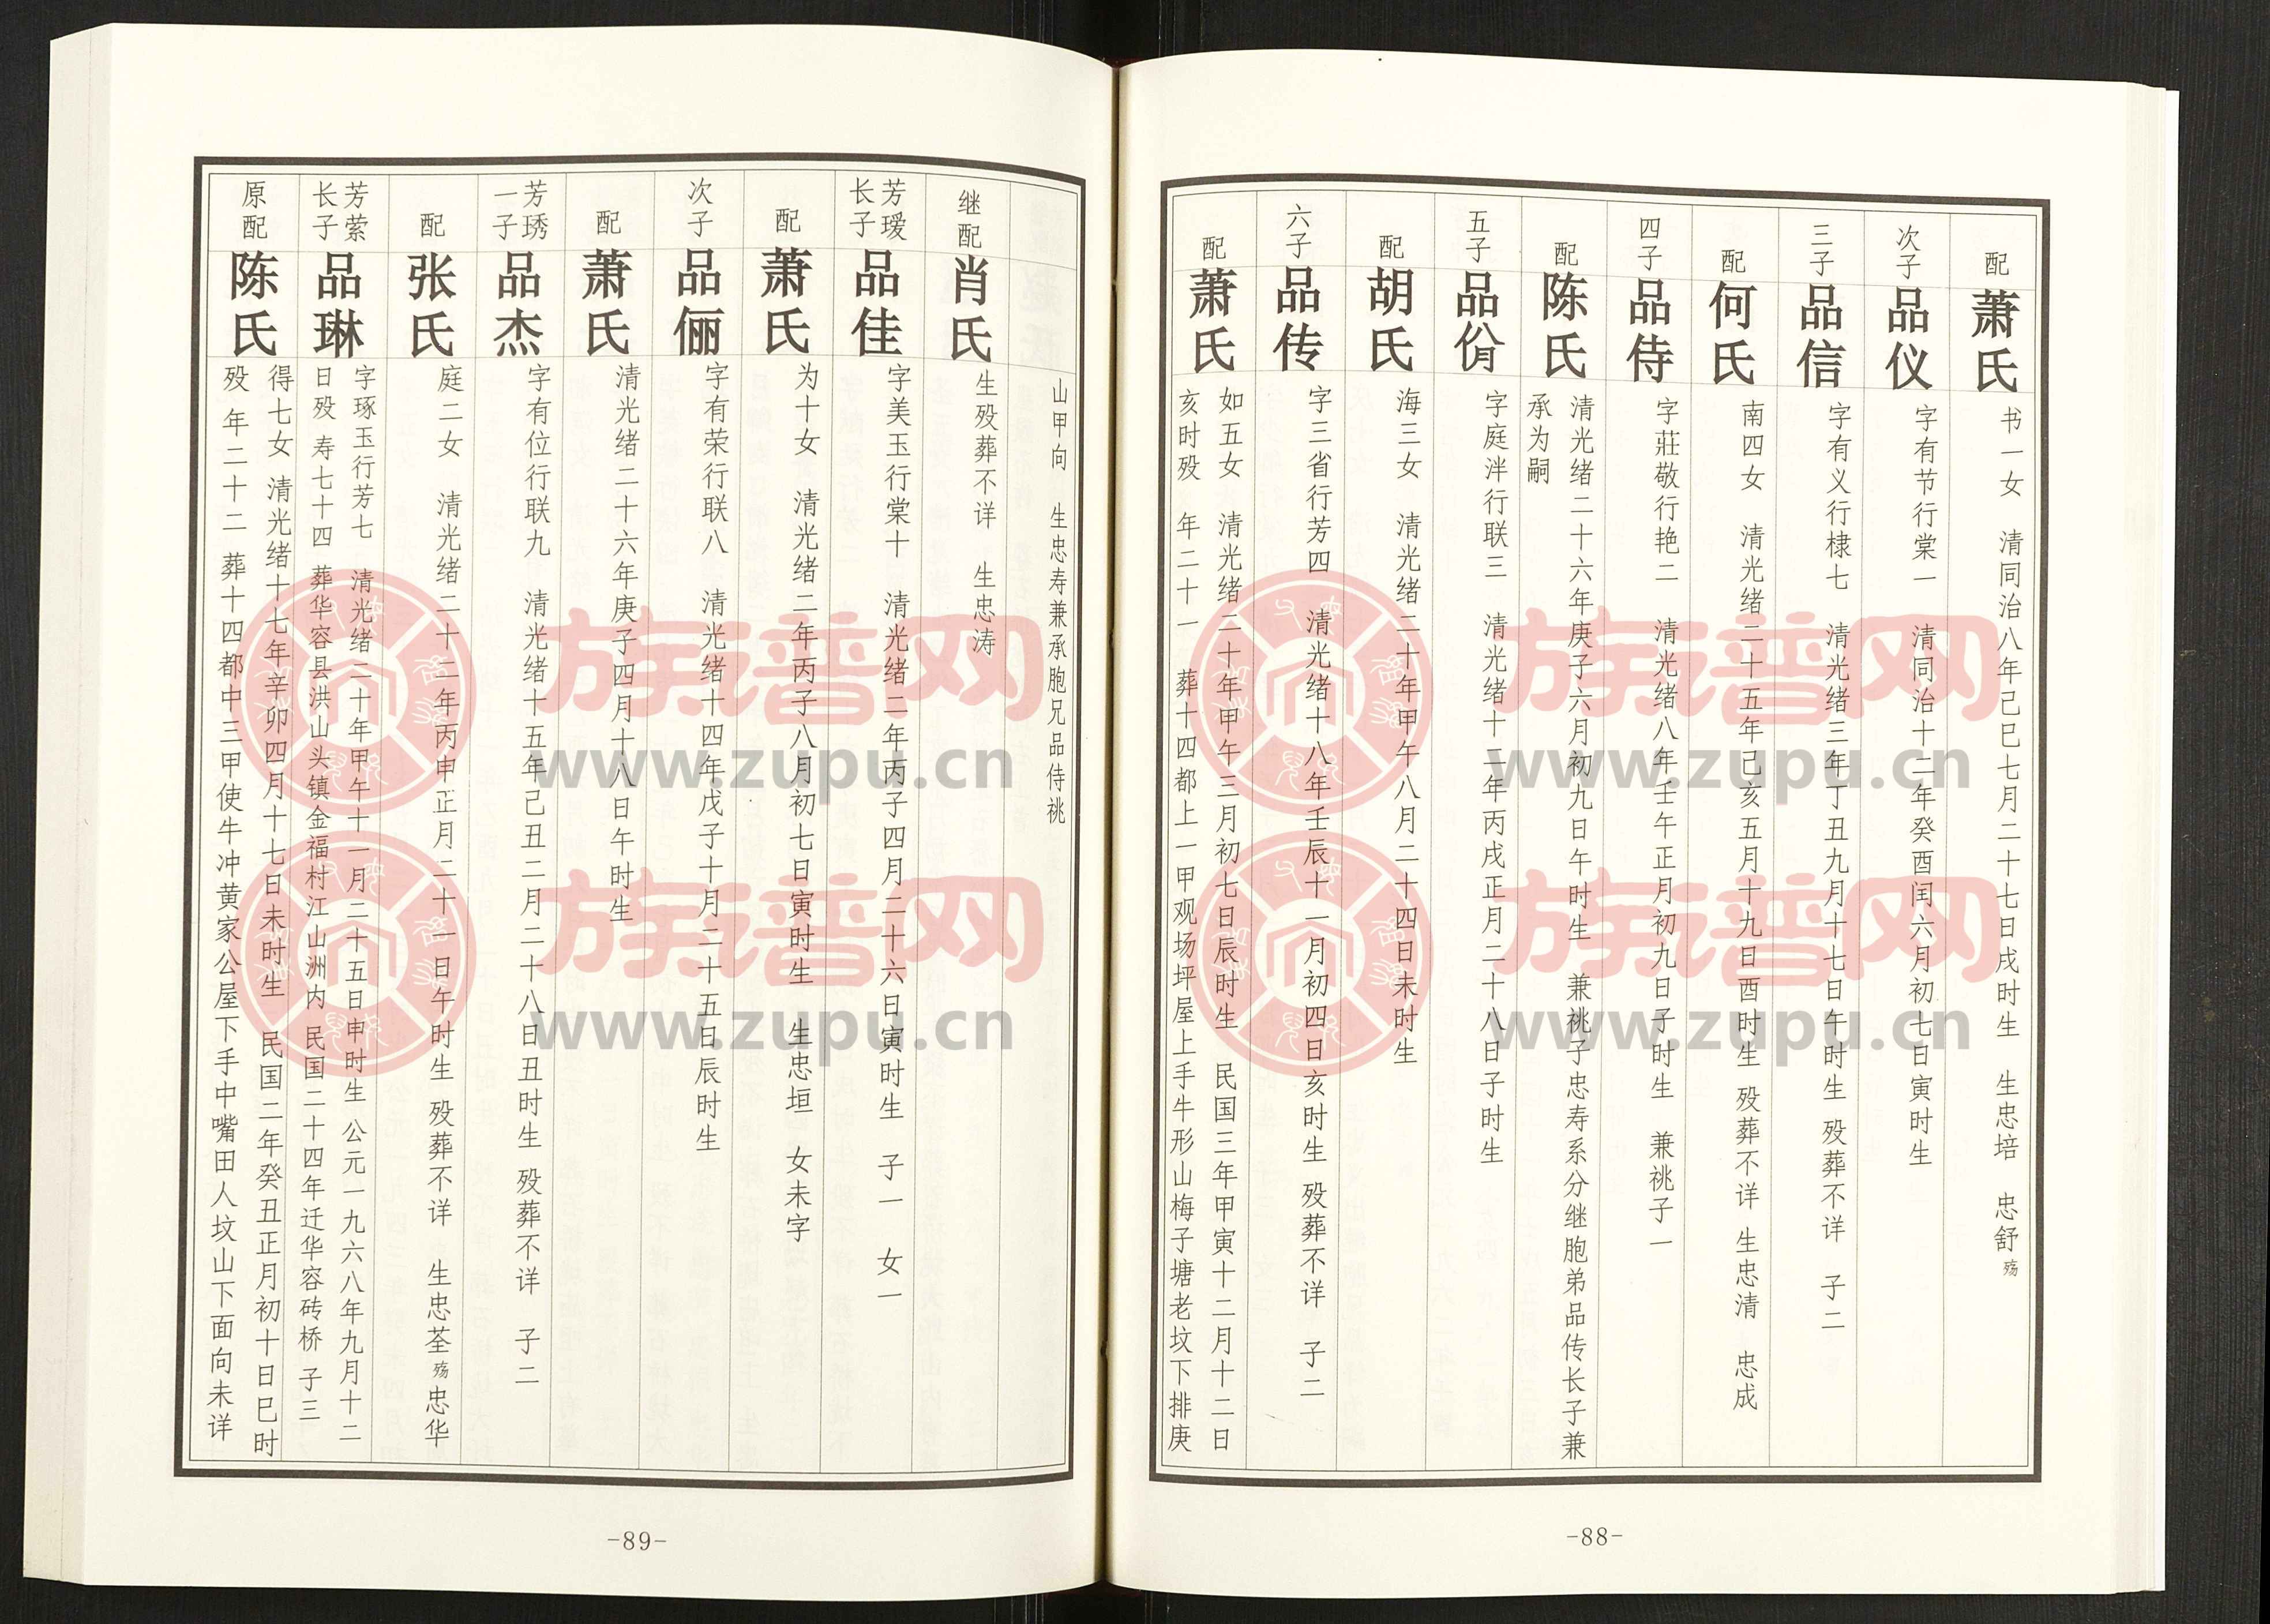 配 萧氏 书一女 清同治八年己巳七月二十七日戌时生 生忠培 忠舒殇
次子 品仪 字有节行棠一 清同治十二年癸酉闰六月初七日寅时生
三子 品信 字有义行棣七 清光绪三年丁丑九月十七日午时生 殁葬不详 子二
配 何氏 南四女 清光绪二十五年己亥五月十九日酉时生 殁葬不详 生忠清 忠成
四子 品侍 字莊敬行艳二 清光绪八年壬午正月初九日子时生 兼祧子一
配 陈氏 清光绪二十六年庚子六月初九日午时生 兼祧子忠寿系分继胞弟品传长子兼
承为嗣
五子 品佾 字庭泮行联三 清光绪十二年丙戌正月二十八日子时生
配 胡氏 海三女 清光绪二十年甲午八月二十四日未时生
六子 品传 字三省行芳四 清光绪十八年壬辰十一月初四日亥时生 殁葬不详 子二
配 萧氏 如五女 清光绪二十年甲午三月初七日辰时生 民国三年甲寅十二月十二日
亥时殁 年二十一 葬十四都上一甲观场坪屋上手牛形山梅子塘老坟下排庚
-88-
山甲向 生忠寿兼承胞兄品侍祧
继配 肖氏 生殁葬不详 生忠涛
芳瑷长子 品佳 字美玉行棠十 清光绪二年丙子四月二十六日寅时生 子一 女一
配 萧氏 为十女 清光绪二年丙子八月初七日寅时生 生忠垣 女未字
次子 品俪 字有荣行联八 清光绪十四年戊子十月二十五日辰时生
配 萧氏 清光绪二十六年庚子四月十八日午时生
芳琇一子 品杰 字有位行联九 清光绪十五年己丑二月二十八日丑时生 殁葬不详 子二
配 张氏 庭二女 清光绪二十二年丙申正月二十一日午时生 殁葬不详 生忠荃殇 忠华
芳萦长子 品琳 字琢玉行芳七 清光绪二十年甲午十一月二十五日申时生 公元一九六八年九月十二
日殁 寿七十四 葬华容县洪山头镇金福村江山洲内 民国二十四年迁华容砖桥 子三
原配 陈氏 得七女 清光绪十七年辛卯四月十七日未时生 民国二年癸丑正月初十日巳时
殁 年二十二 葬十四都中三甲使牛冲黄家公屋下手中嘴田人坟山下面向未详
-89-
族谱网
www.zupu.cn
族谱网
www.zupu.cn
族谱网
www.zupu.cn
族谱网
www.zupu.cn